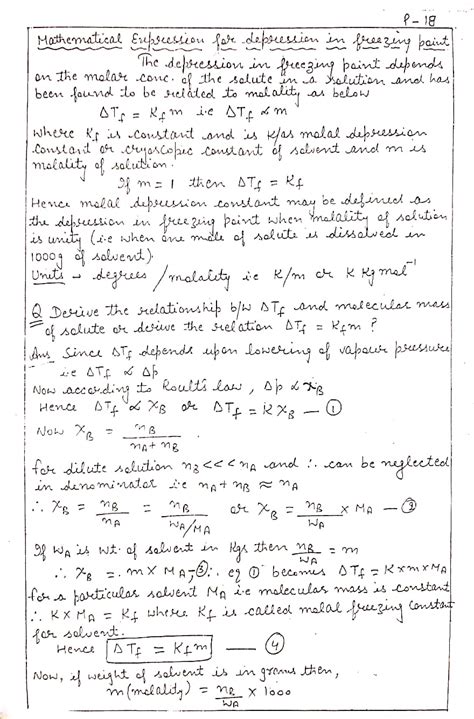 P-18
Mathematical Expression for depression in freezing point
The depression in freezing point depends
on the molar conc. of the solute in a solution and has
been found to be related to molality as below
ΔTf = Kf m i.e ΔTf ∝ m
where Kf is constant and is k/as molal depression
constant or cryoscopic constant of solvent and m is
molality of solution.
If m = 1 then ΔTf = Kf
Hence molal depression constant may be defined as
the depression in freezing point when molality of solution
is unity (i.e when one mole of solute is dissolved in
1000g of solvent)
Units → degrees / molality i.e K/m or K Kg mol⁻¹
Q Derive the relationship b/w ΔTf and molecular mass
of solute or derive the relation ΔTf = Kf m ?
Ans Since ΔTf depends upon lowering of vapour pressure
i.e ΔTf ∝ Δp
Now according to Roult's law, Δp ∝ XB
Hence ΔTf ∝ XB or ΔTf = K XB — ①
Now XB = nB / nA + nB
for dilute solution nB <<< nA and ∴ can be neglected
in denominator i.e nA + nB ≈ nA
∴ XB = nB / nA = nB / WA/MA or XB = nB / WA × MA — ②
If WA is wt. of solvent in Kgs then nB / WA = m
∴ XB = m × MA — ③ ∴ eq ① becomes ΔTf = K × m × MA
for a particular solvent MA i.e molecular mass is constant
∴ K × MA = Kf where Kf is called molal freezing constant
for solvent.
Hence ΔTf = Kf m — ④
Now, if weight of solvent is in grams then,
m (molality) = nB / WA × 1000